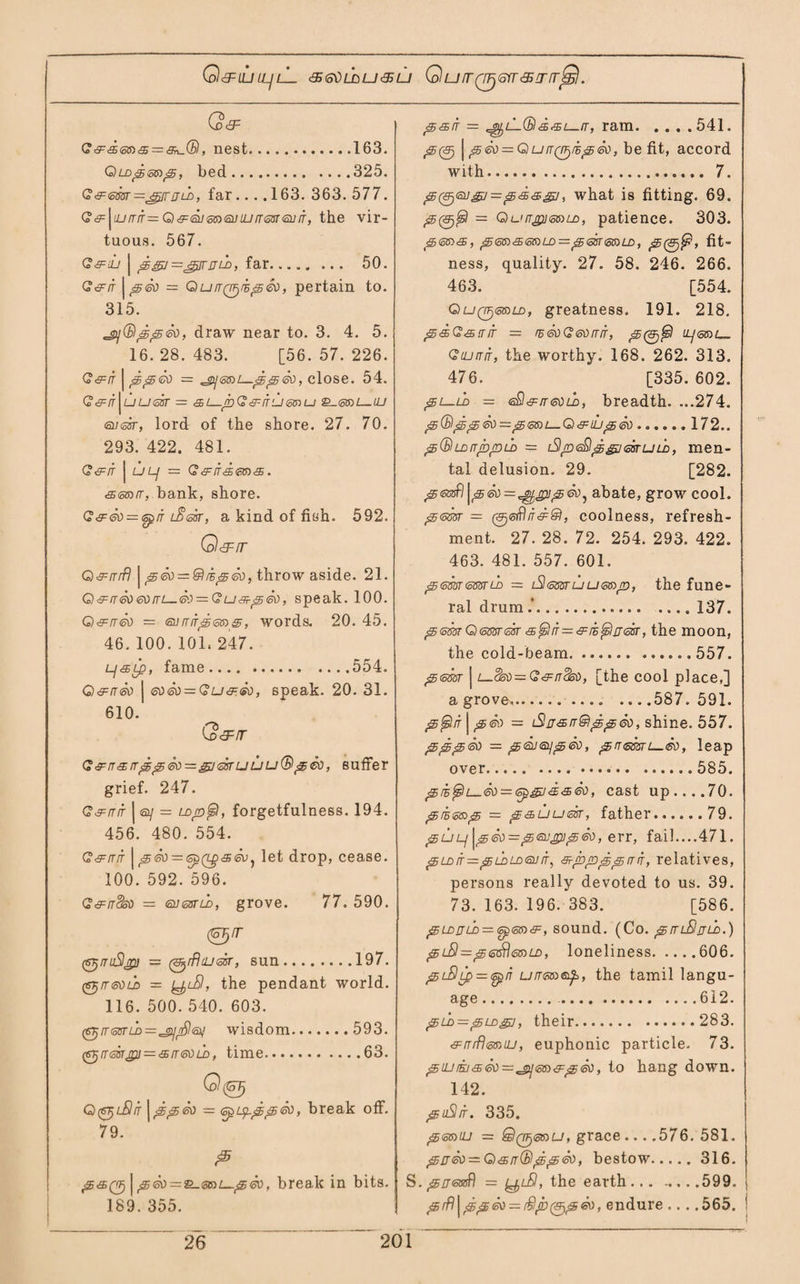 செய்யுட் கலம்பகப் பொருளகராதி.
சே
சேக்கை=கூடு, nest............163.
மெத்தை, bed............325.
சேண்=தூரம், far....163. 363. 577.
சே|யார்=செவ்வையானவர், the vir-
tuous. 567.
சேய் | த்து=தூரம், far........ 50.
சேர் | தல் = பொருந்தல், pertain to.
315.
அடுத்தல், draw near to. 3. 4. 5.
16. 28. 483. [56. 57. 226.
சேர் | த்தல் = அடைத்தல், close. 54.
சேர்|ப்பன் = கடற்சேர்ப்பை உடைய
வன், lord of the shore. 27. 70.
293. 422. 481.
சேர் | ப்பு = சேர்க்கை.
கரை, bank, shore.
சேல்=ஓர் மீன், a kind of fish. 592.
சொ
சொரி | தல்=சிந்தல், throw aside. 21.
சொல்லாடல்=பேசுதல், speak. 100.
சொல் = வார்த்தை, words. 20. 45.
46. 100. 101. 247.
புகழ், fame..............554.
சொல் | லல்=பேசல், speak. 20. 31.
610.
சோ
சோகாத்தல்=துன்பப்படுதல், suffer
grief. 247.
சோர் | வு = மறதி, forgetfulness. 194.
456. 480. 554.
சோர் | தல்=ஒழுகல், let drop, cease.
100. 592. 596.
சோலை = வனம், grove. 77. 590.
ஞா
ஞாயிறு = சூரியன், sun........197.
ஞாலம் = பூமி, the pendant world.
116. 500. 540. 603.
ஞானம்=அறிவு wisdom.......593.
ஞான்று=காலம், time...........63.
ஞெ
ஞெமிர் |த்தல் = ஒடித்தல், break off.
79.
த
தகரு | தல்=உடைதல், break in bits.
189. 355.
தகர் = ஆட்டுக்கடா, ram. .....541.
தகு | தல்=பொருந்தல், be fit, accord
with....................... 7.
தகுவது=தக்கது, what is fitting. 69.
தகுதி = பொறுமை, patience. 303.
தகை, தகைமை=தன்மை, தகுதி, fit-
ness, quality. 27. 58. 246. 266.
463. [554.
பெருமை, greatness. 191. 218.
தக்கோர் = நல்லோர், தகுதி யுடை
யோர், the worthy. 168. 262. 313.
476. [335. 602.
தடம் = விசாலம், breadth. ...274.
தடுத்தல்=தடைசெய்தல......172..
தடுமாற்றம் = பிறவித்துன்பம், men-
tal delusion. 29. [282.
தணி|தல்=ஆறுதல், abate, grow cool.
தண் = குளிர்ச்சி, coolness, refresh-
ment. 27. 28. 72. 254. 293. 422.
463. 481. 557. 601.
தண்ணம் = பிணப்பறை, the fune-
ral drum................... 137.
தண்ணென் கதிர்=சந்திரன், the moon,
the cold-beam. .............557.
தண் | டலை=சோலை, [the cool place,]
a grove..................587. 591.
ததிர் | தல் = பிரகாசித்தல், shine. 557.
தத்தல் = தவவுதல், தாண்டல், leap
over.......................585.
தந்திடல்=ஒதுக்கல், cast up....70.
தந்தை = தகப்பன், father......79.
தப்பு |தல்=தவறுதல், err, fail....471.
தமர்=தம்மவர், சுற்றத்தார், relatives,
persons really devoted to us. 39.
73. 163. 196. 383. [586.
தமரம்=ஓசை, sound. (Co. தாமிரம்.)
தமி=தனிமை, loneliness. .....606.
தமிழ்=ஓர் பாஷை, the tamil langu-
age......................612.
தம்=தமது, their..............283.
சாரியை, euphonic particle. 73.
தயங்கல்=அசைதல், to hang down.
142.
தயிர். 335.
தயை = இருபை, grace....576. 581.
தரல்=கொடுத்தல், bestow..... 316.
S. தரணி = பூமி, the earth... .....599.
தரி| த்தல்=நிற்குதல், endure....565.
26 201